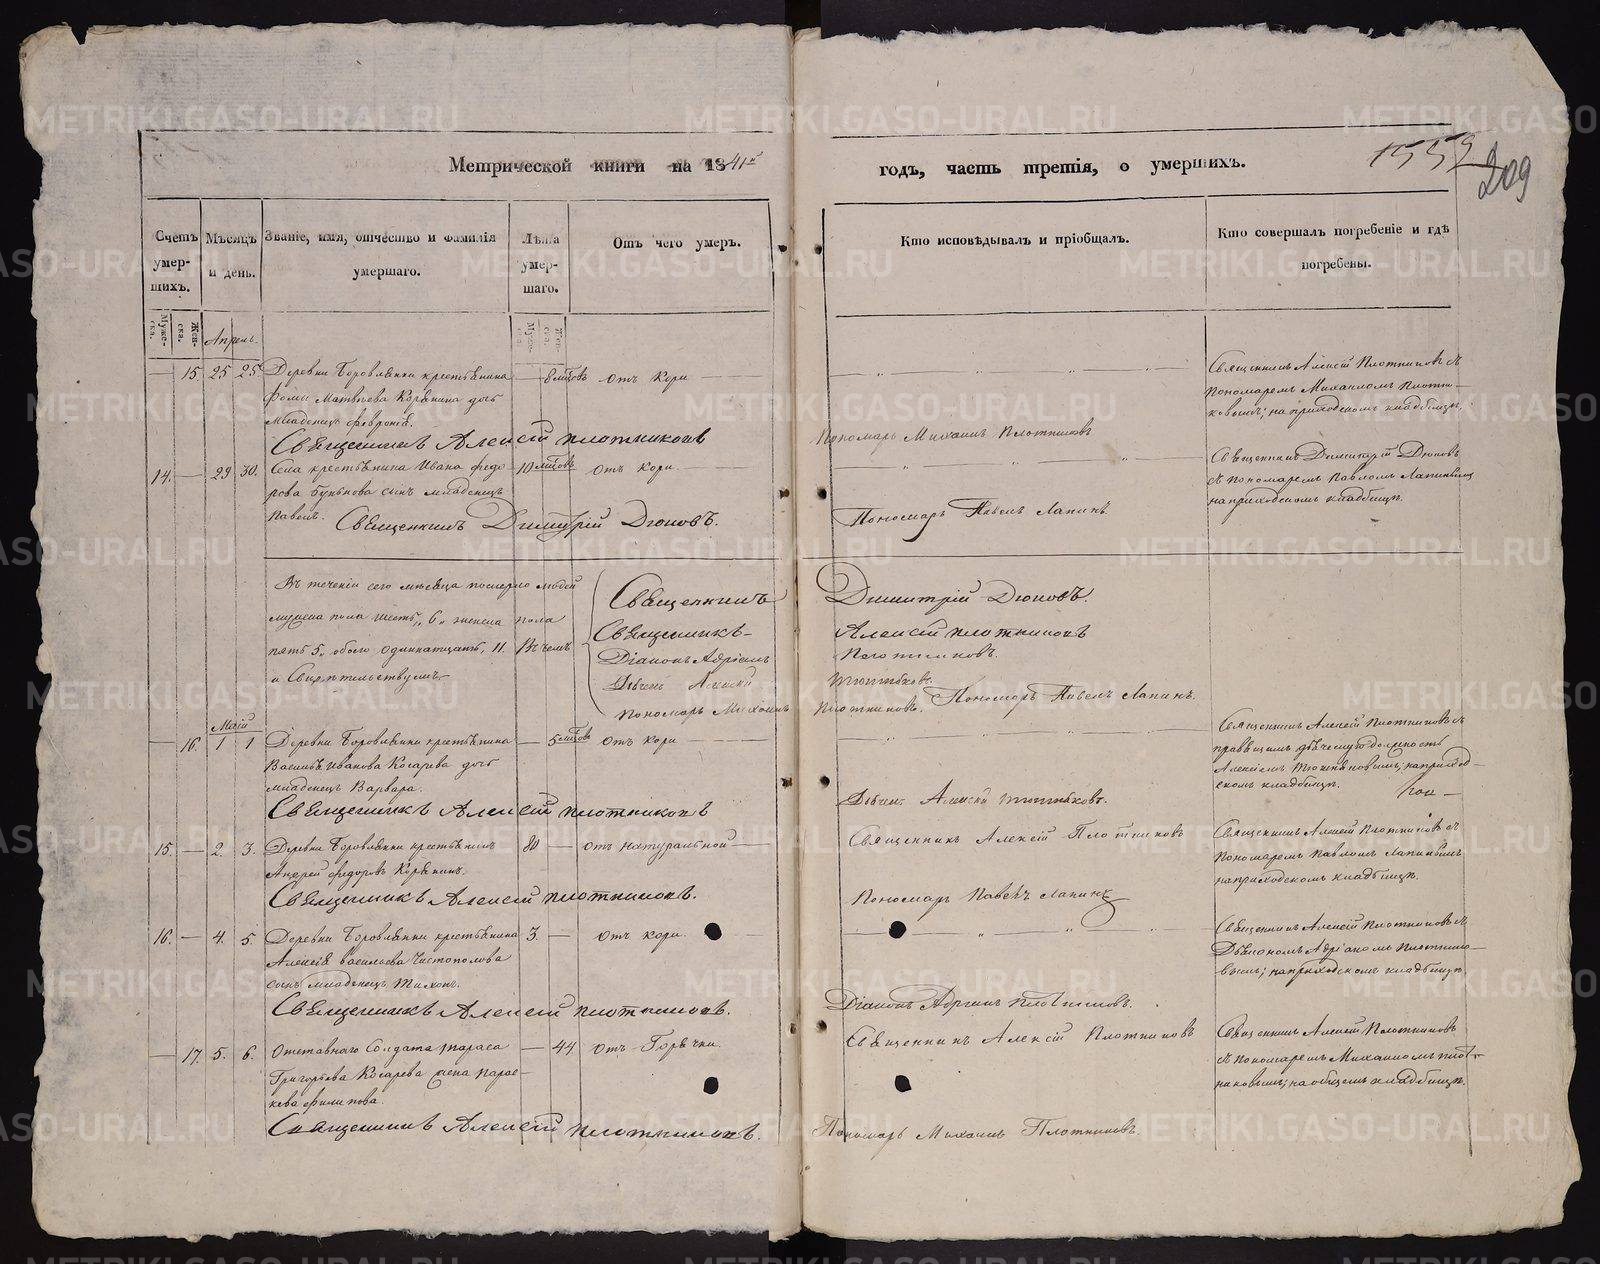 Метрической книги на 1841й
годъ, часть третія, о умершихъ.
1559
209
Счетъ умер-шихъ.
Мѣсяцъ и день.
Званіе, имя, отчество и фамилія умершаго.
Лѣта умер-шаго.
Отъ чего умеръ.
Кто исповѣдывалъ и пріобщалъ.
Кто совершалъ погребеніе и гдѣ погребены.
Муже-ска.
Жен-ска.
Апрель
15. 25 25 Деревни Боровлянки крестьянина
Фомы Матвѣева Корянина дочь
младенецъ Февронія.
Священникъ Алексій Плотниковъ
8 мѣсцовъ отъ кори
Пономарь Михаилъ Плотниковъ
Священникъ Алексій Плотниковъ съ
пономаремъ Михаиломъ Плотни-
ковымъ; на приходскомъ кладбищѣ.
14. 29 30. Села крестьянина Ивана Федо-
рова сынъ младенецъ
Павелъ. Священникъ Димитрій Дюковъ.
10 мѣсцовъ отъ кори
Пономарь Павелъ Лапинъ
Священникъ Димитрій Дюковъ
съ пономаремъ Павломъ Лапинымъ
на приходскомъ кладбищѣ.
Въ теченіи сего мѣсяца померло людей
мужеска пола шесть „6„ женска пола
пять 5„ обоего одиннатцать, 11. Въ чемъ
и Свидѣтельствуемъ
Священникъ Димитрій Дюковъ.
Священникъ Алексій Плотниковъ
Діаконъ Адріанъ Плотниковъ.
Дьячекъ Алексѣй
Пономарь Михаилъ Плотниковъ. Пономарь Павелъ Лапинъ.
Маій
16. 1 1 Деревни Боровлянки крестьянина
Василья Иванова Косарева дочь
младенецъ Варвара.
Священникъ Алексій Плотниковъ
5 мѣсцовъ отъ кори
Дьячекъ Алексѣй
Священникъ Алексій Плотниковъ съ
правящимъ дьяческую должность
на приход-
скомъ кладбищѣ.
15. 2. 3. Деревни Боровлянки крестьянинъ
Андрей Федоровъ Корянинъ.
Священникъ Алексій Плотниковъ.
80 отъ натуральной
Священникъ Алексій Плотниковъ
Пономарь Павелъ Лапинъ
Священникъ Алексій Плотниковъ съ
пономаремъ Павломъ Лапинымъ
на приходскомъ кладбищѣ.
16. 4. 5. Деревни Боровлянки крестьянина
Алексія Васильева Чистополова
сынъ младенецъ Тихонъ.
Священникъ Алексій Плотниковъ.
3. отъ кори.
Діаконъ Адріанъ Плотниковъ.
Священникъ Алексій Плотниковъ съ
Діакономъ Адріаномъ Плотнико-
вымъ; на приходскомъ кладбищѣ.
17. 5. 6. Отставнаго Солдата Тараса
Григорьева Косарева жена Парас-
кева Филипова.
Священникъ Алексій Плотниковъ.
44 отъ Горячки
Священникъ Алексій Плотниковъ
Пономарь Михаилъ Плотниковъ.
Священникъ Алексій Плотниковъ
съ пономаремъ Михаиломъ Плот-
никовымъ; на общемъ кладбищѣ.
METRIKI.GASO-URAL.RU